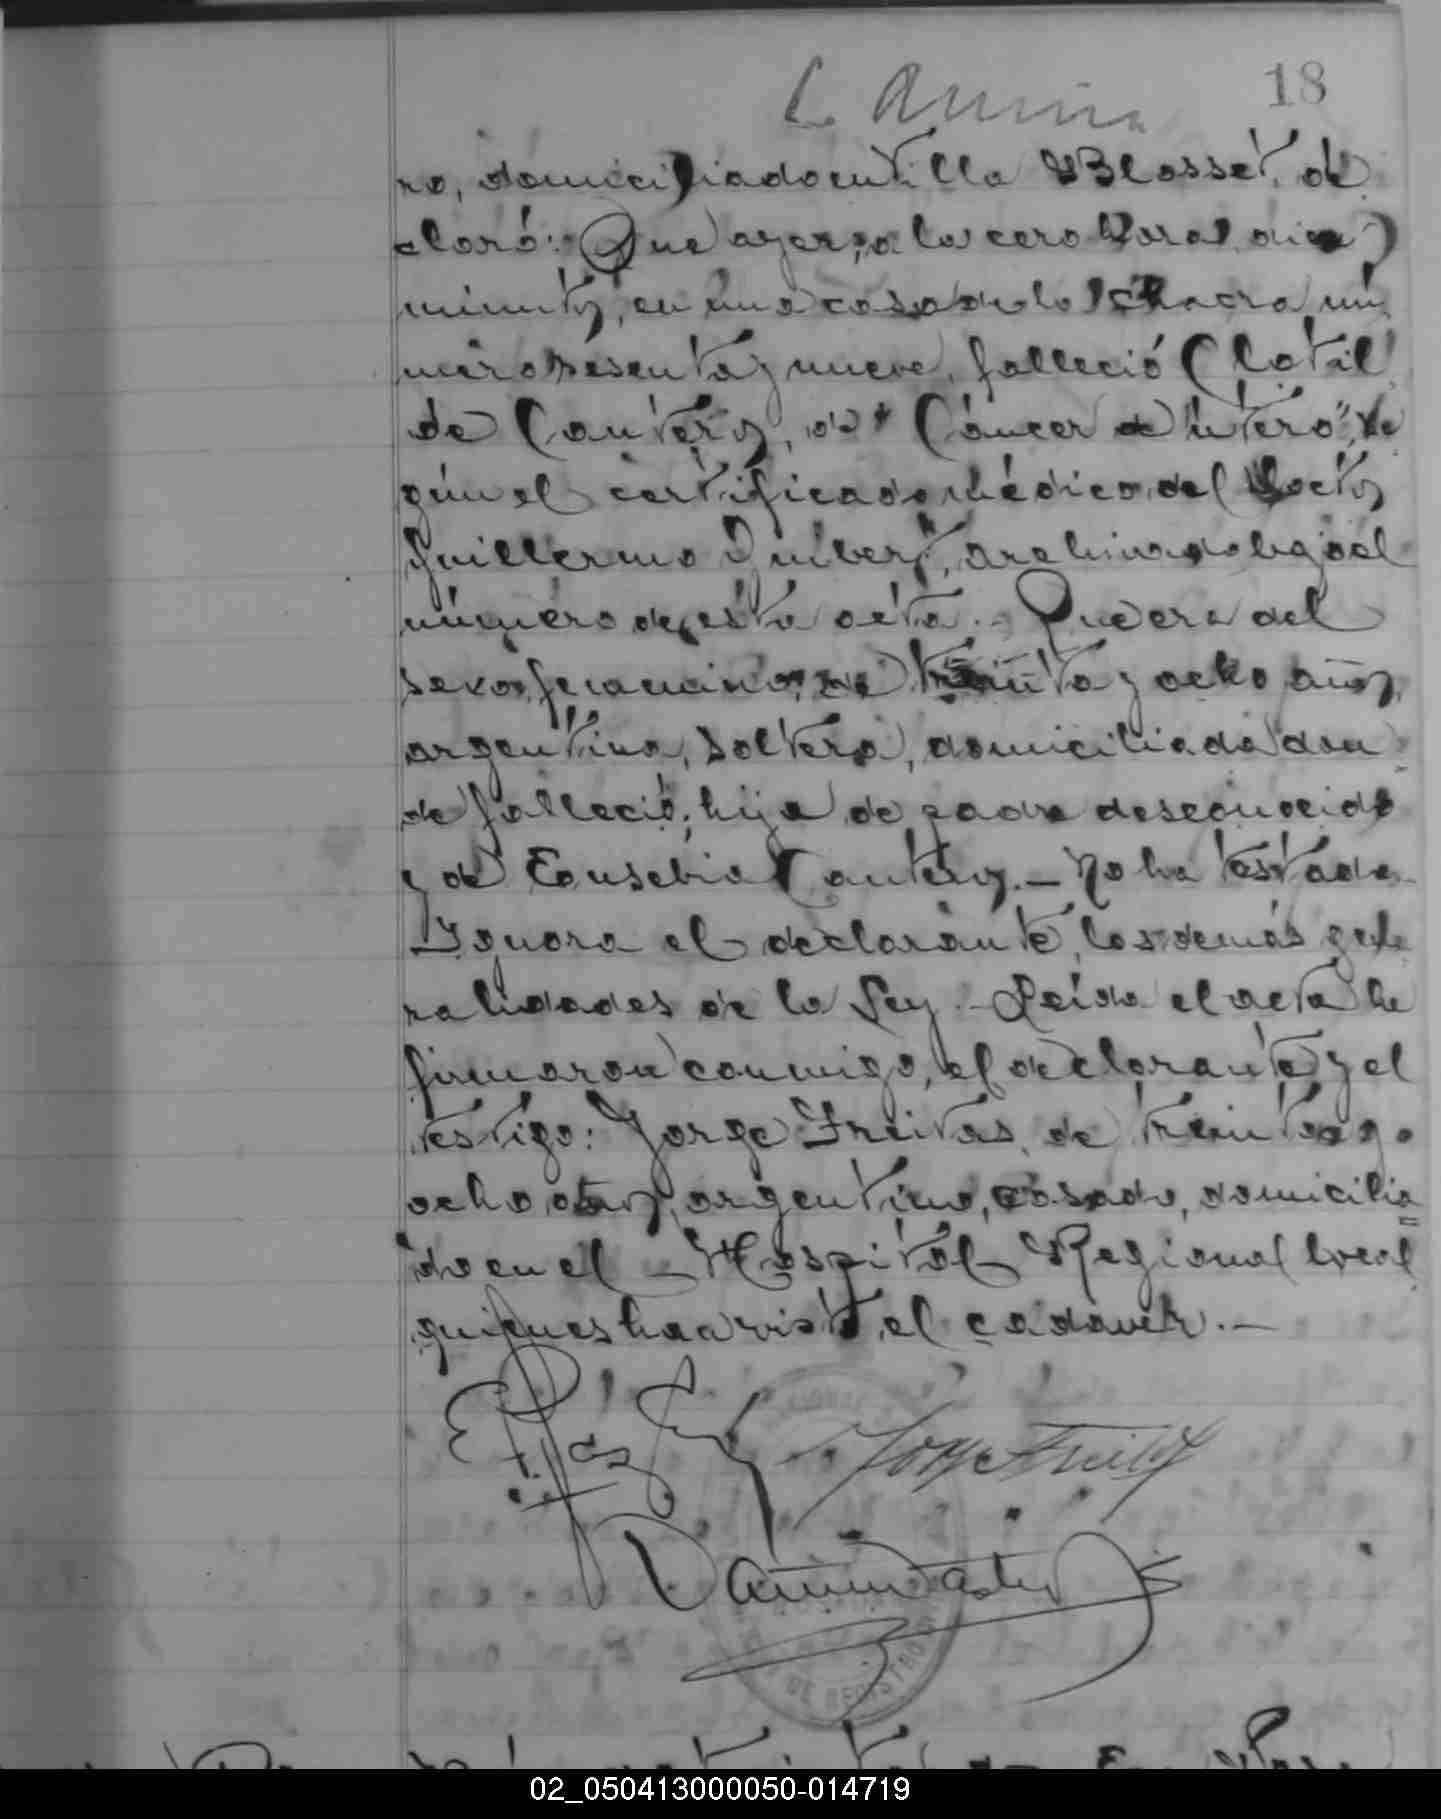 18
ro, domiciliado en Villa Blosset, de
claró: Que ayer, a la cero hora diez
minutos, en una casa de la chacra nú
mero sesenta y nueve, falleció Clotil
de Canteros, de "Cáncer de útero", se
gún el certificado médico del Doctor
Guillermo, archivado bajo el
número de esta acta.- Que era del
sexo femenino, de treinta y ocho años,
argentina, soltera, domiciliada don
de falleció; hija de padre desconocido
y de Eusebia Canteros.- No ha testado.
Ignora el declarante las demás gene
ralidades de la Ley.- Leída el acta la
firmaron conmigo, el declarante y el
testigo: Jorge Freitas, de treinta y
ocho años, argentino, casado, domicilia
do en el Hospital Regional local
quienes han visto el cadáver.-
Jorge Freitas
DE REGISTRO
02_050413000050-014719